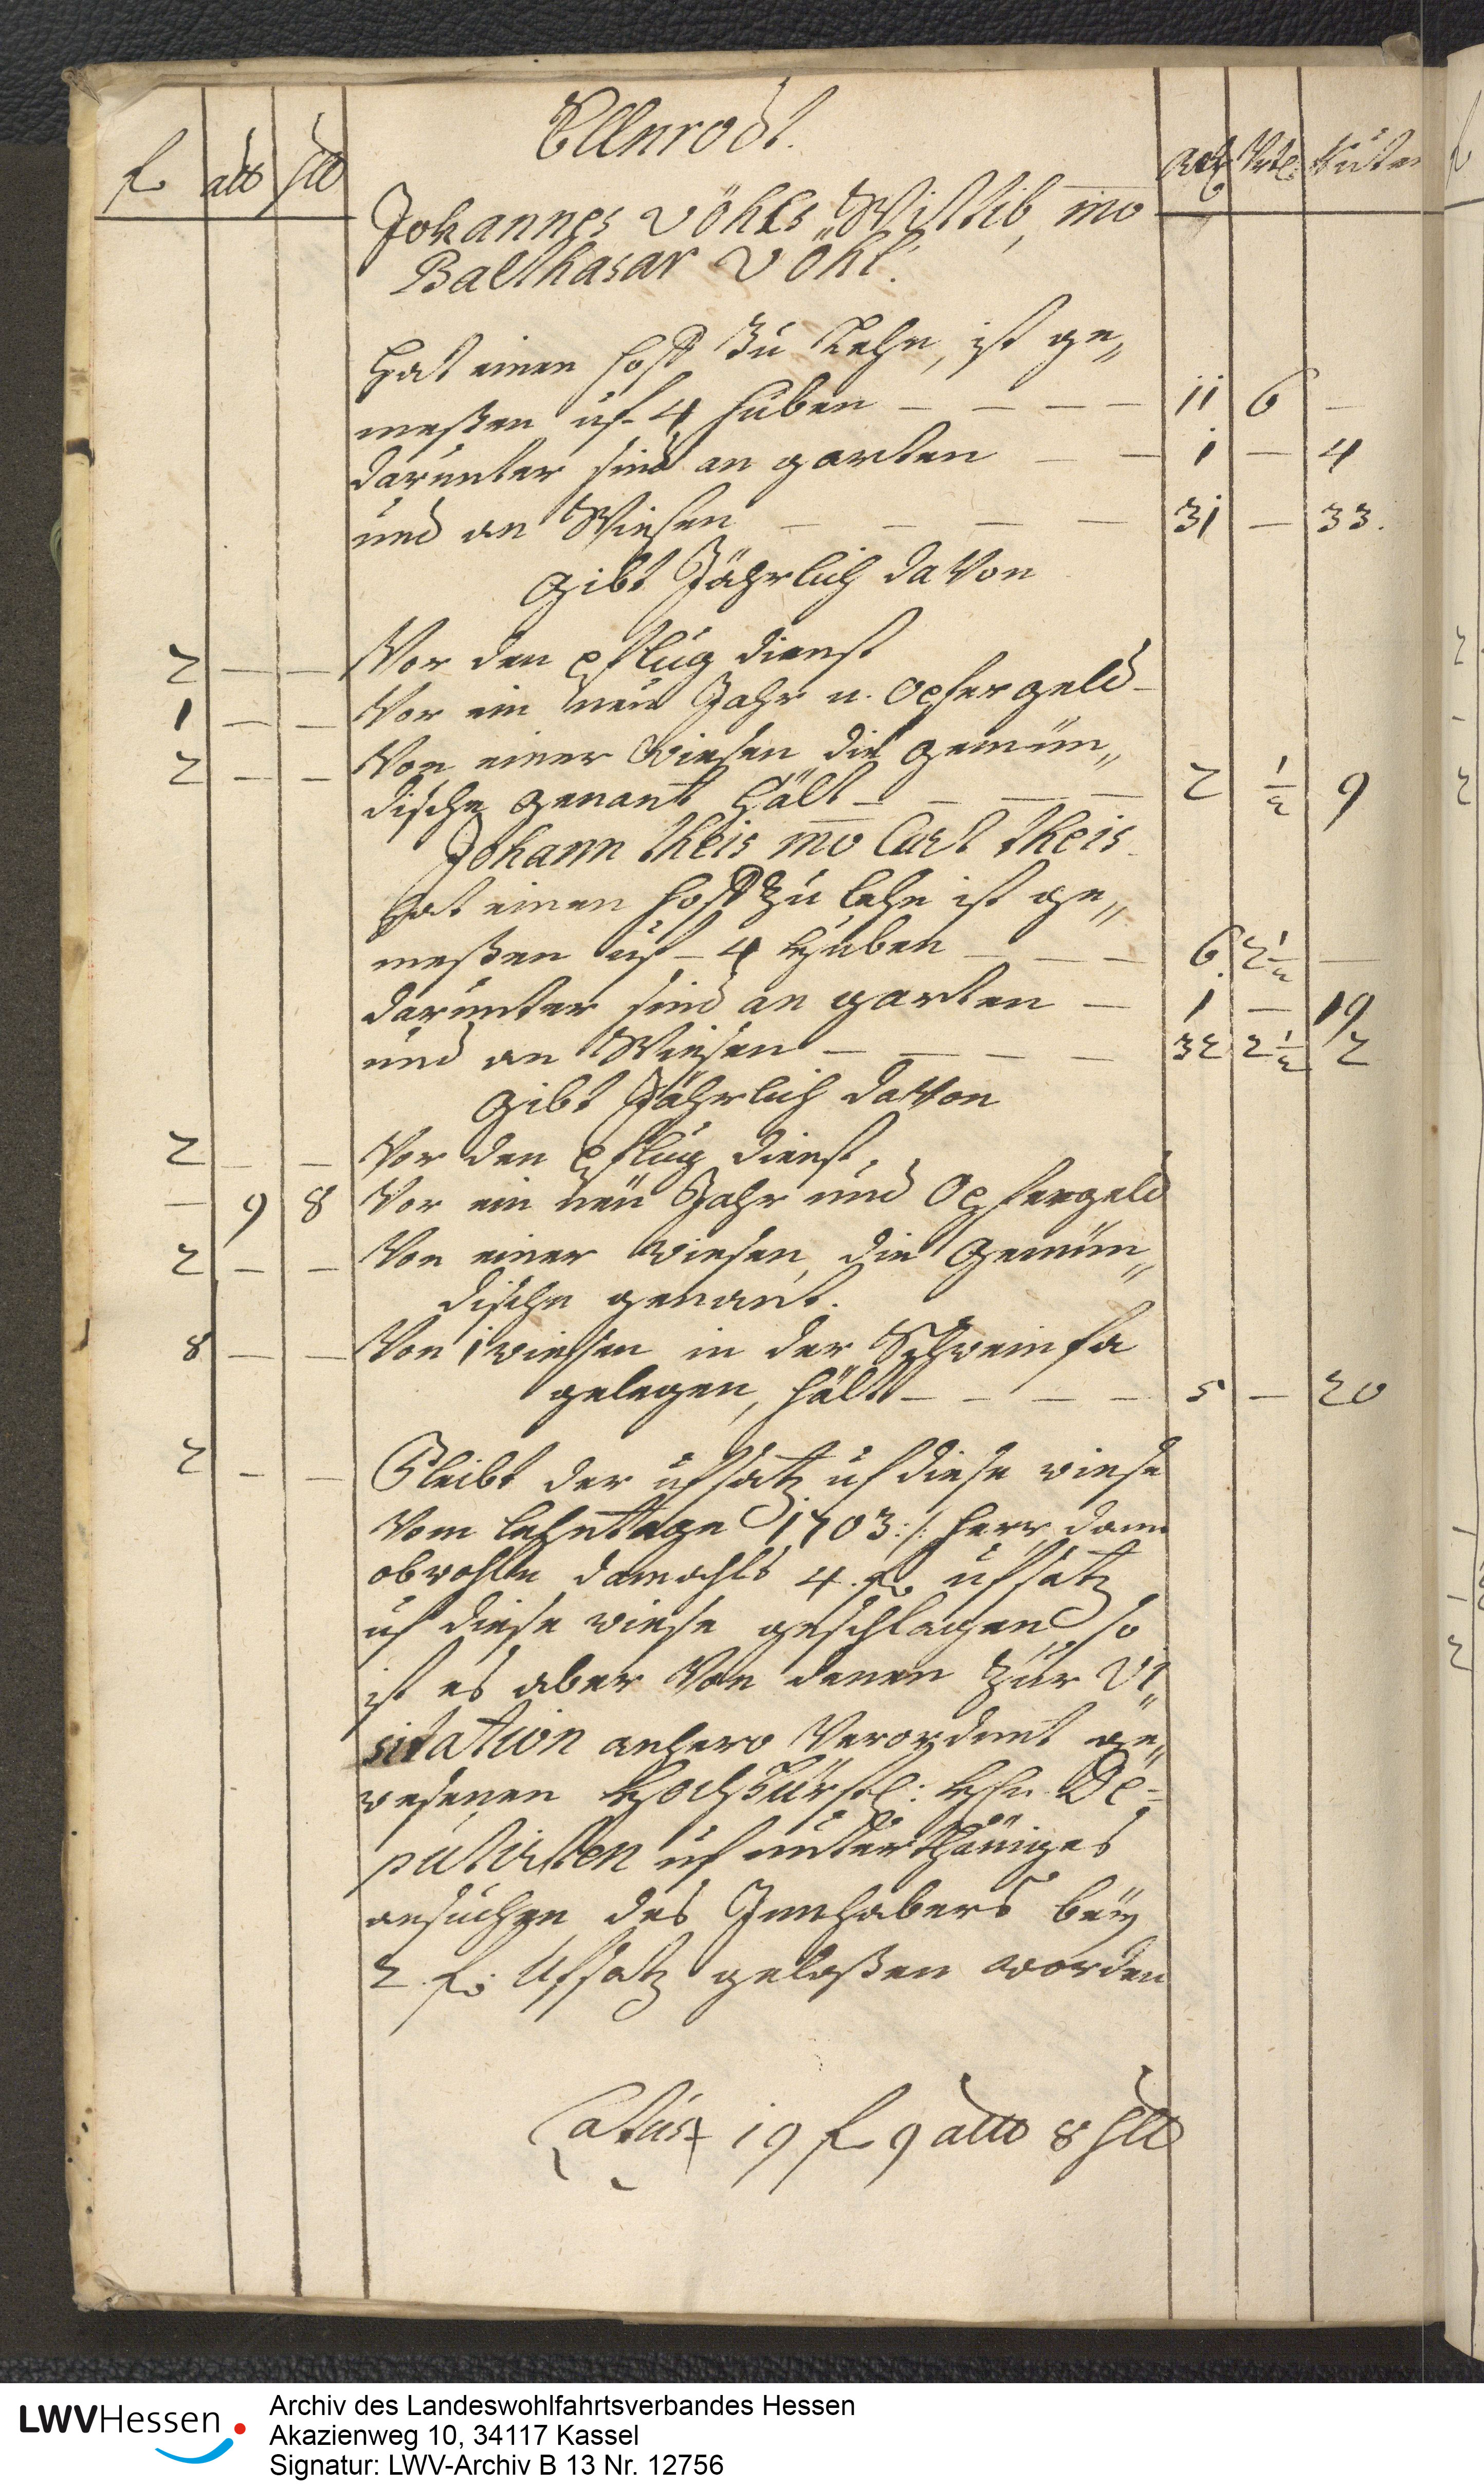 Ellnrodt.
f alb hll
Ack. Vrtl. Ruten
Johannes Vöhls Wittib, mo
Balthasar Vöhl.
Hat einen Hoff Zu Lehn, ist ge„
meßen uf 4 huben — — — — 11 6 —
darunter sind an garten — — 1 — 4
und an Wiesen — — — — 31 — 33.
Gibt Jährlich davon
2 — — Vor den Pflug dienst
1 — — Vor ein neu Jahr u. Opfergeld
2 — — Von einer Wiesen die gemün„
dische genant hält — — — — 2 1/2 9
Johann Theis mo Carl Theis.
Hat einen Hoff Zu Lehn ist ge„
meßen uf 4 Huben — — — 6. 2 1/2 —
darunter sind an garten — 1 — 19
und an Wiesen — — — — 32 2 1/2 2
Gibt Jährlich davon
2 — — Vor den Pflug dienst,
— 9 8 Vor ein neu Jahr und Opfergeld
2 — — Von einer Wiesen, die Gemün„
dische genant.
8 — — Von 1 wiesen in der Schweinfa
gelegen, hält — — — — 5 — 20
2 — — Bleibt der ufsatz uf diese wiese
Vom Lehntage 1703 :/: herr, dann
obwohln damahls 4. f. ufsatz
uf diese wiese geschlagen, so
ist es aber Von denen Zur Vi„
sitation anhero Verordnet ge„
wesenen Hochfürstl: HEn. De=
putirten uf unterthäniges
ansuchen des Innhabers bey
2 f. Ufsatz gelaßen worden
Latus 19 f 9 alb 8 hll
LWVHessen
Archiv des Landeswohlfahrtsverbandes Hessen
Akazienweg 10, 34117 Kassel
Signatur: LWV-Archiv B 13 Nr. 12756